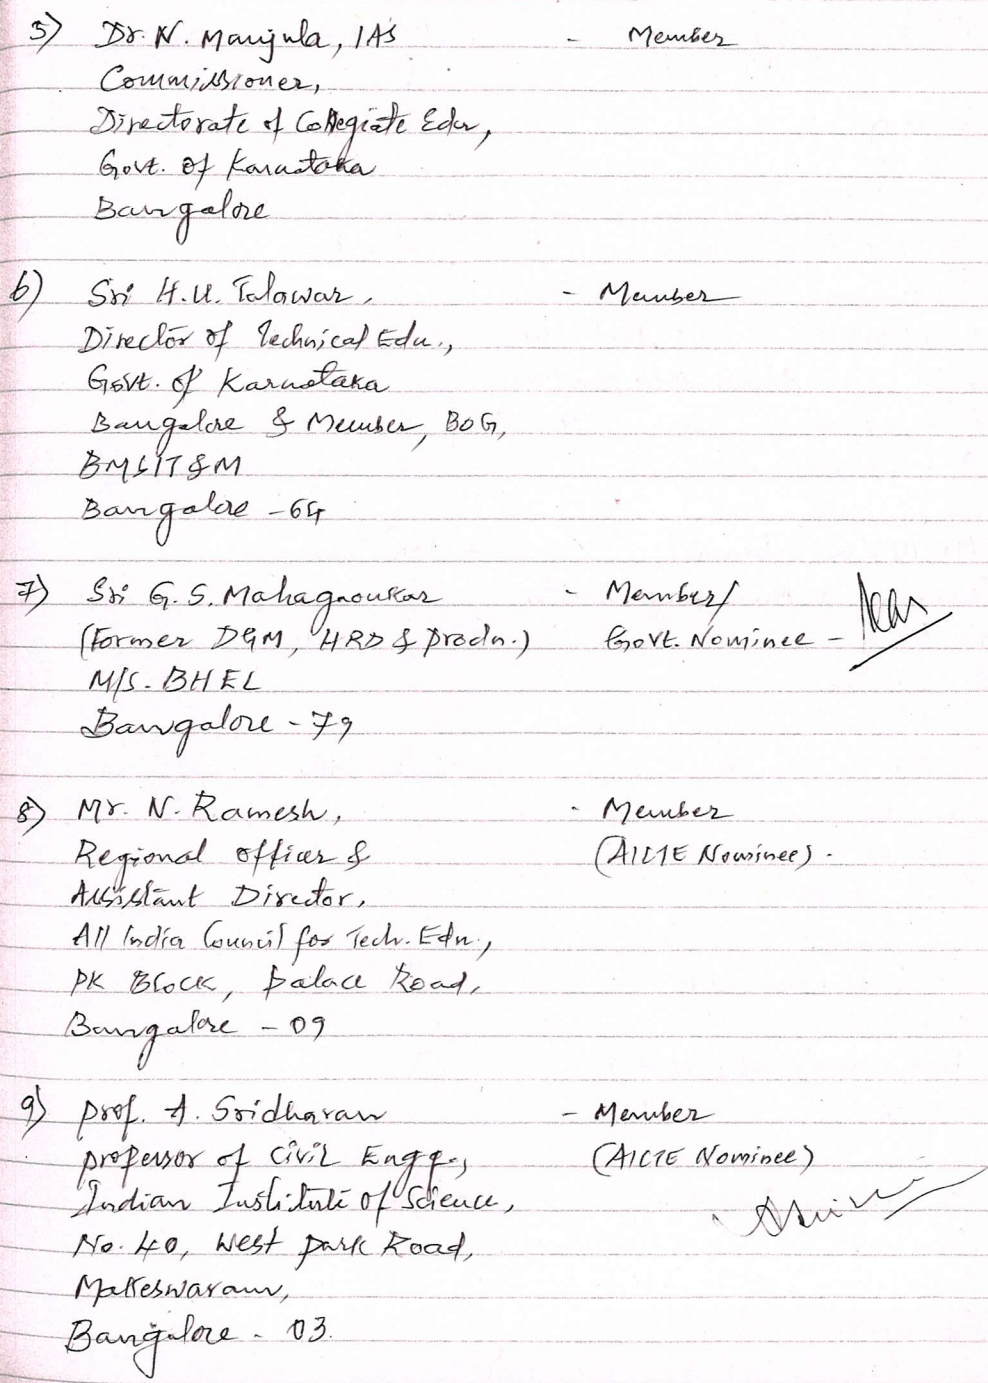 5) Dr. N. Manjula, IAS - Member
Commissioner,
Directorate of Collegiate Edu,
Govt. of Karnataka
Bangalore
6) Sri H.U. Talawar, - Member
Director of Technical Edu.,
Govt. of Karnataka
Bangalore & Member, BOG,
BMSIT&M
Bangalore - 64
7) Sri G. S. - Member/
(Former DGM, HRD & Prodn.) Govt. Nominee -
M/S. BHEL
Bangalore - 79
8) Mr. N. Ramesh, - Member
Regional Officer & (AICTE Nominee).
Assistant Director,
All India Council for Tech. Edn.,
PK Block, Palace Road,
Bangalore - 09
9) Prof. A. Sridharan - Member
professor of Civil Engg., (AICTE Nominee)
Indian Institute of Science,
No. 40, West Park Road,
Malleswaram,
Bangalore - 03.